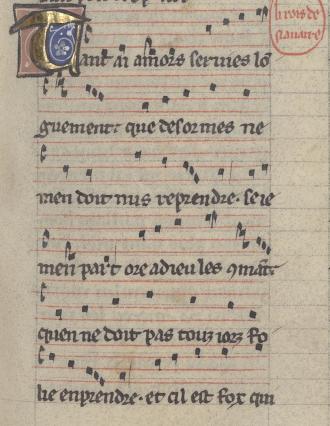 li rois de
nauarre
Tant ai amors seruies lo
guement. que desormes ne
men doit nus reprendre. se ie
men part ore adieu les 9mant
quen ne doit pas touz iorz fo
lie enprendre. et cil est fox qui